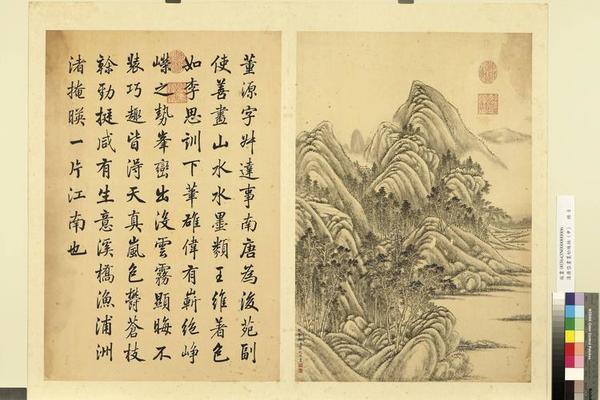 董源字叔達事南唐為後苑副
使善畫山水水墨類王維著色
如李思訓下筆雄偉有嶄絕崢
嶸之勢峯巒出沒雲霧顯晦不
裝巧趣皆得天真嵐色鬱蒼枝
榦勁挺咸有生意溪橋漁浦洲
渚掩暎一片江南也